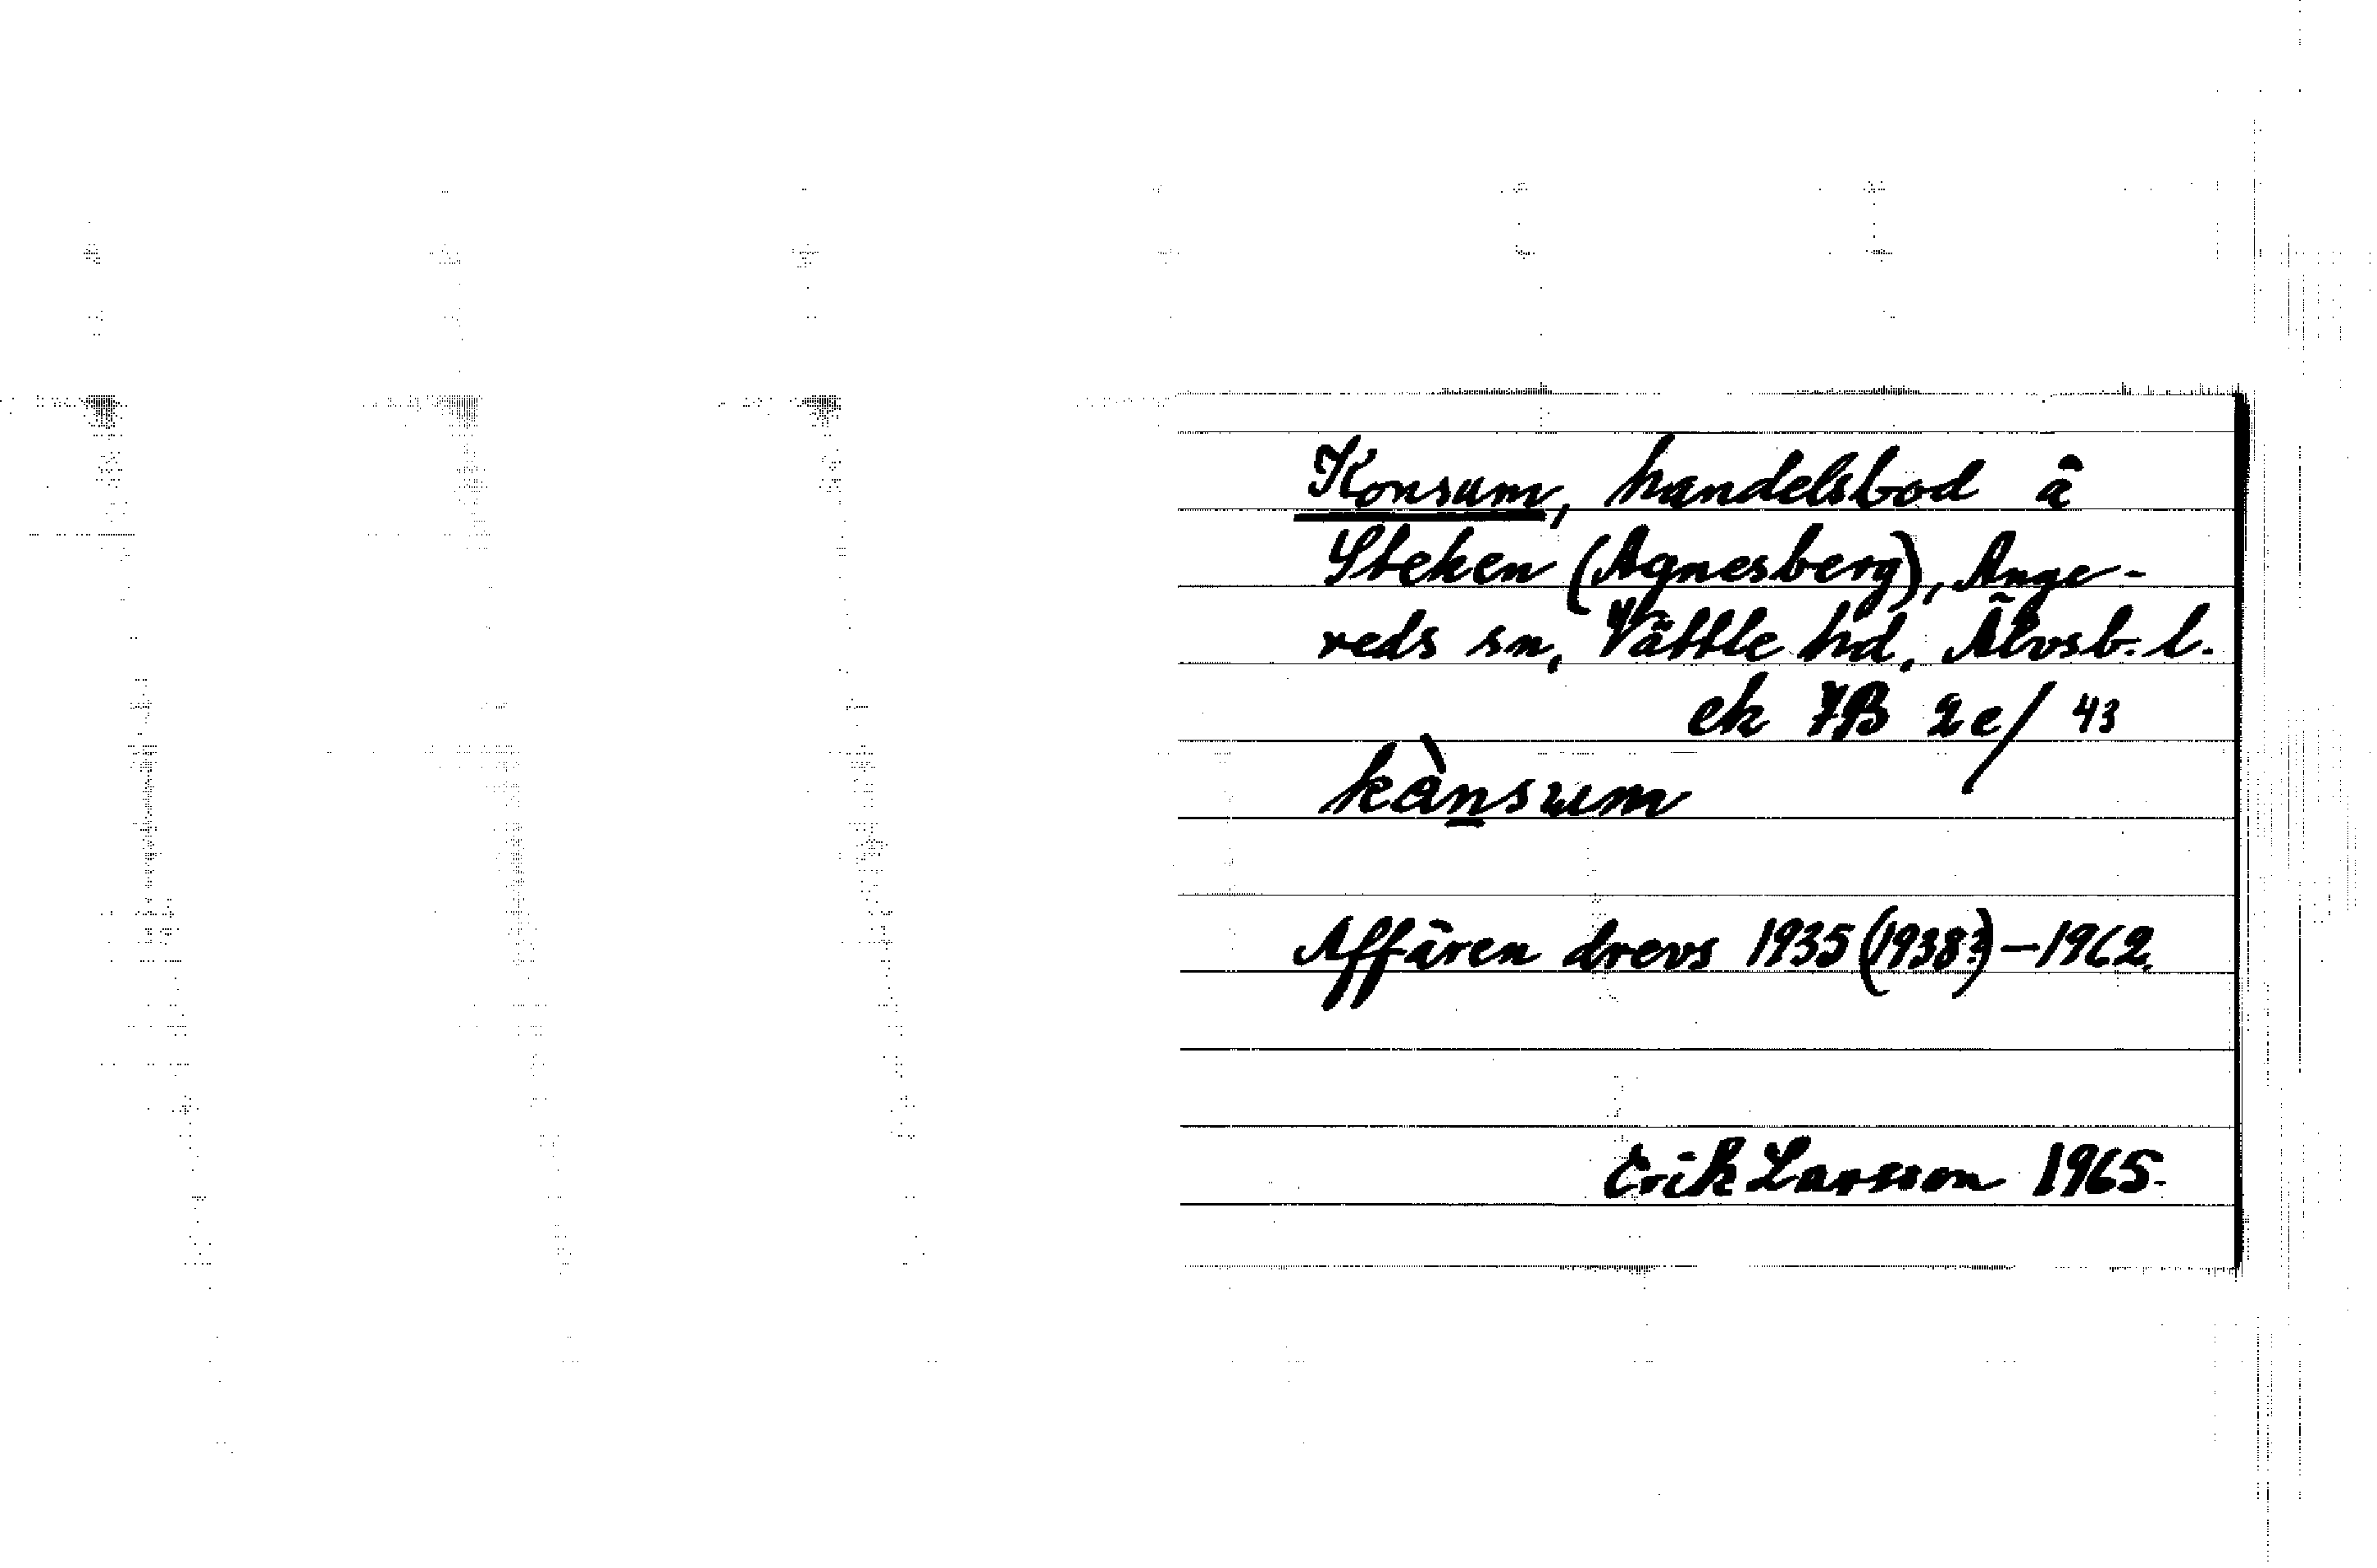 Konsum, handelsbod å
Steken (Agnesberg), Ange-
reds sn, Vättle hd, Älvsb. l.
ek 7B 2e/43
kànsum
Affären drevs 1935 (1938?)-1962.
Erik Larsson 1965.